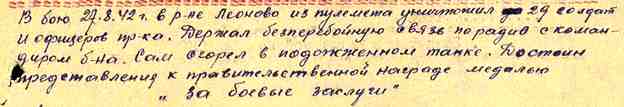 В бою 27.8.42 г. в р-не Леоново из пулемета уничтожил до 29 солдат
и офицеров пр-ка. Держал безперебойную связь порадио с коман-
диром б-на. Сам сгорел в подожженном танке. Достоин
представления к правительственной награде медалью
"За боевые заслуги"